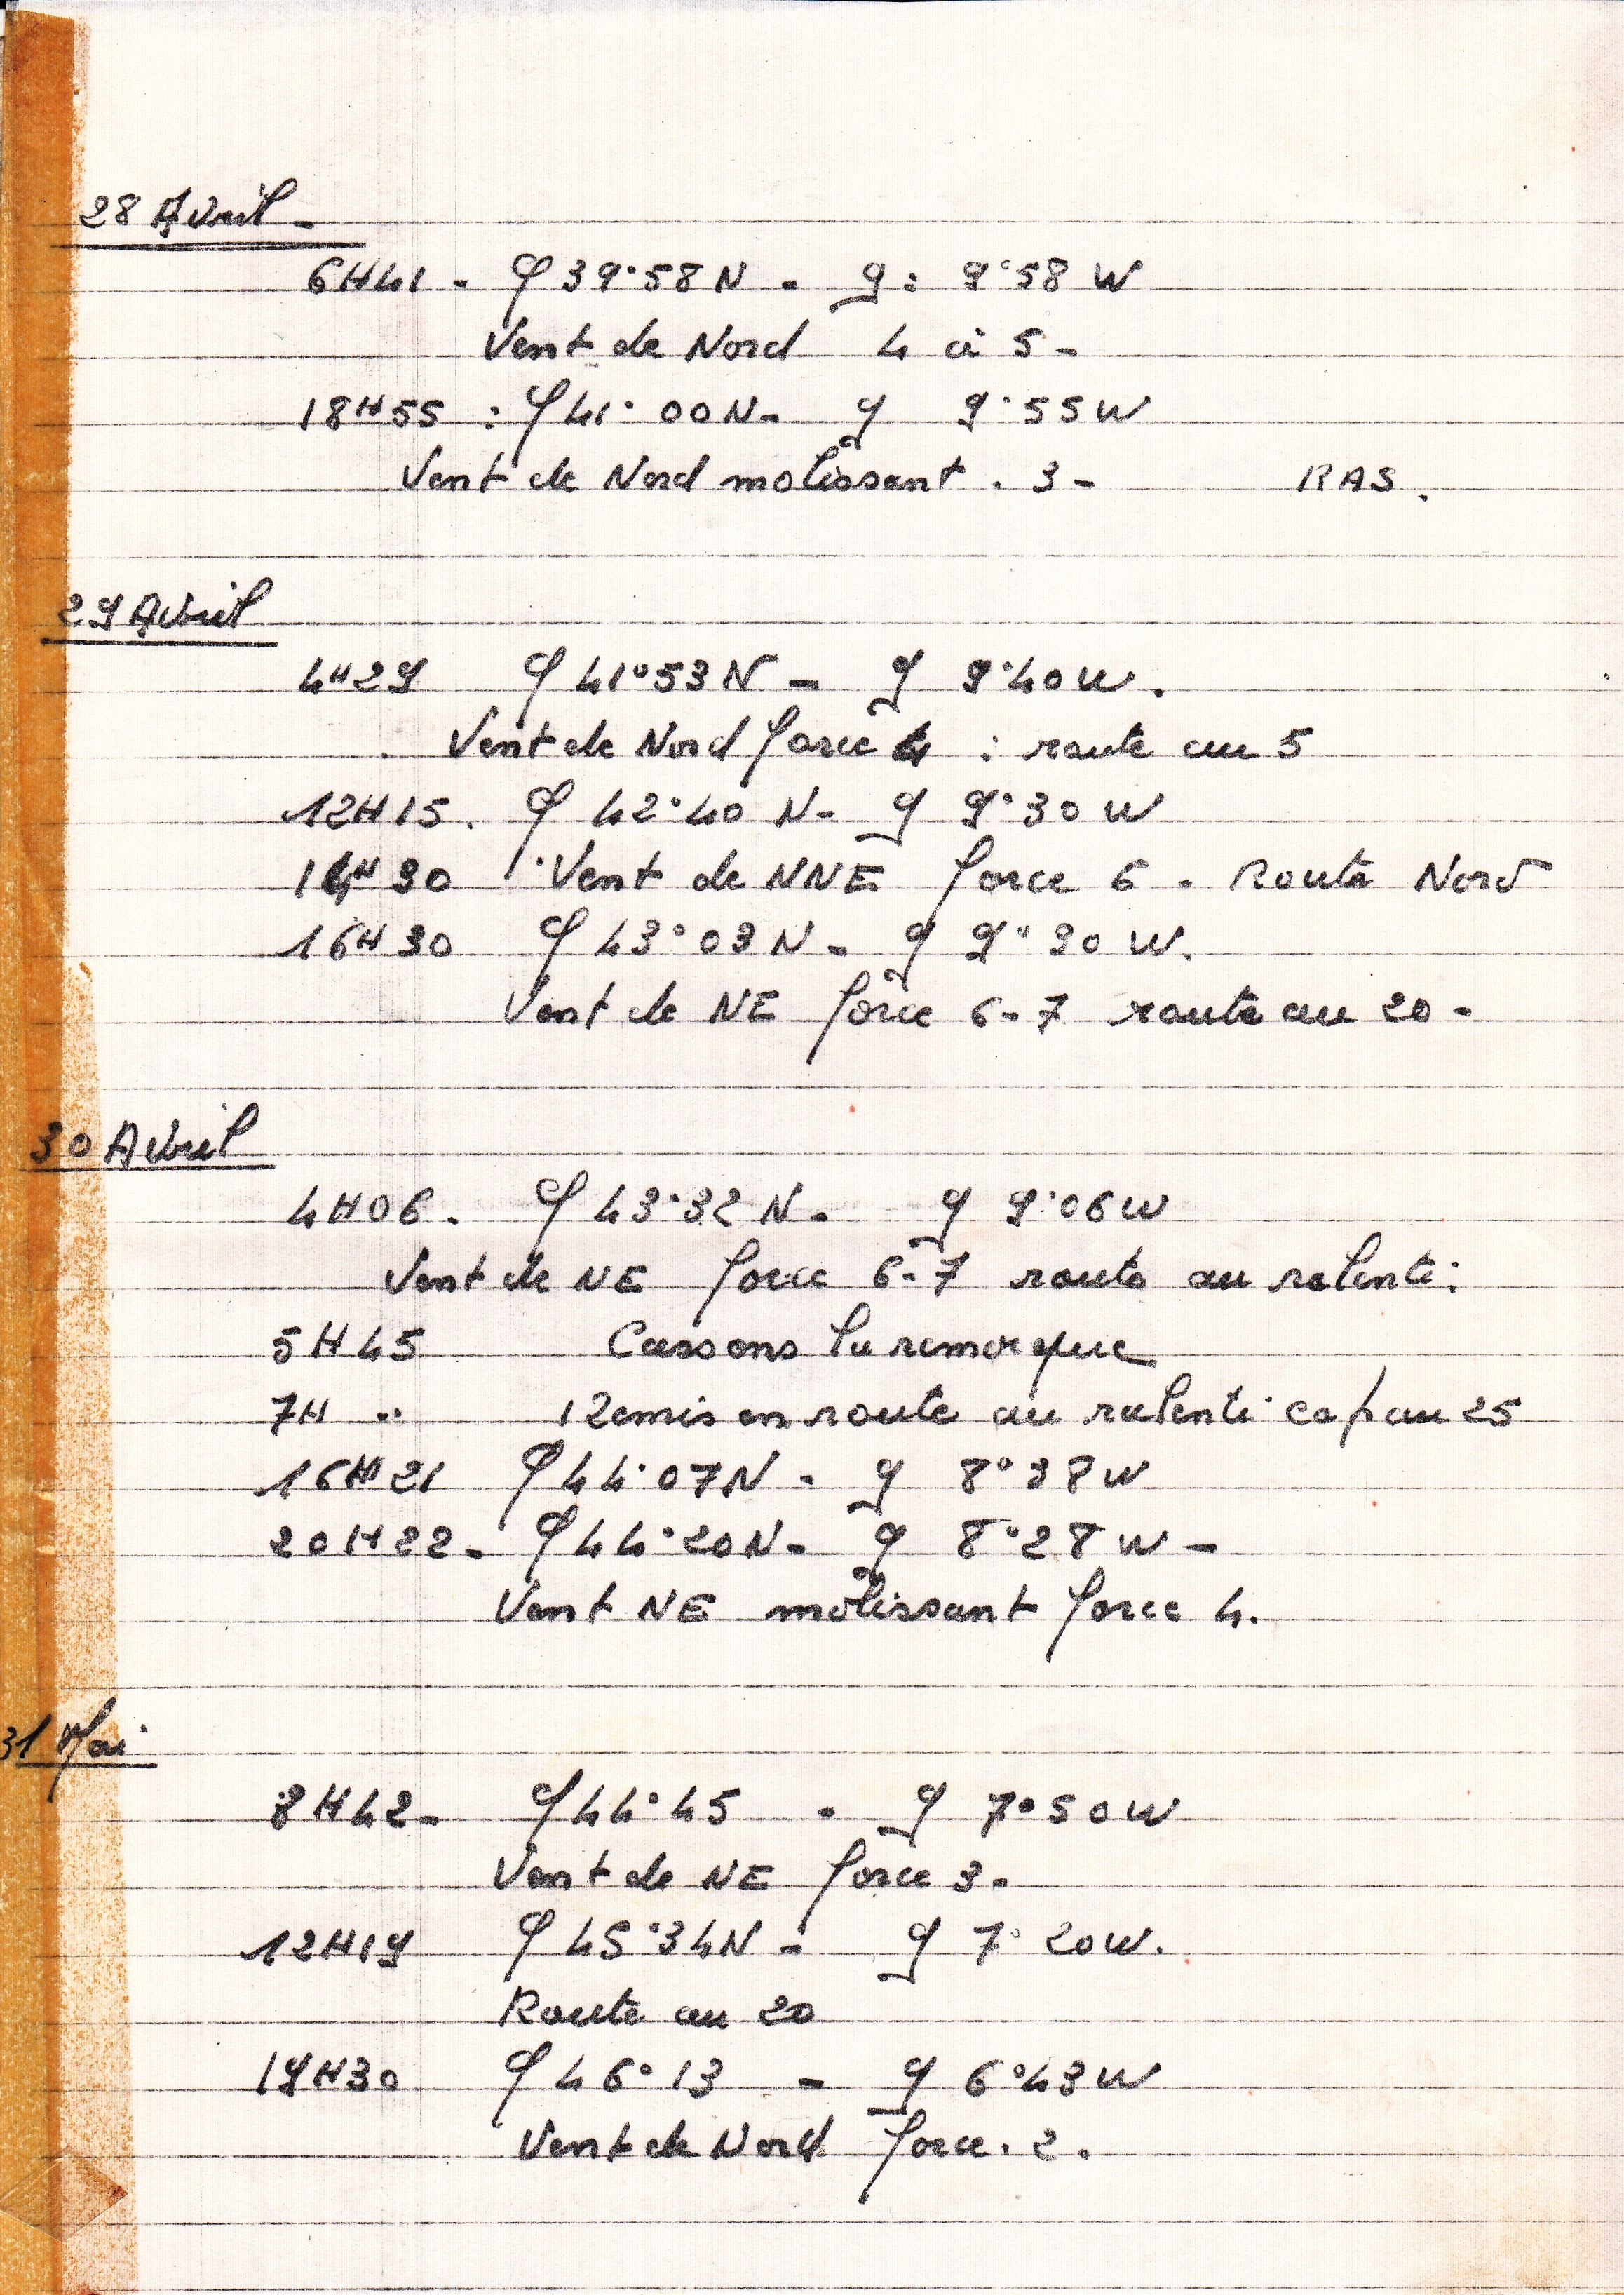 28 Avril -
6H41 - φ 39°58 N - g : 9°58 W
Vent de Nord 4 à 5 -
18H55 : φ 41° 00 N - g 9°55 W
Vent de Nord molissant . 3 - RAS.
29 Avril
4H29 φ 41°53 N - g 9°40 W.
Vent de Nord force 4 : route au 5
12H15. φ 42°40 N - g 9°30 W
14H30 Vent de NNE force 6 - Route Nord
16H30 φ 43°03 N - g 9°30 W.
Vent de NE force 6-7 route au 20 -
30 Avril
4H06. φ 43°32 N - g 9°06 W
Vent de NE force 6-7 route au ralenti.
5H45 Cassons la remorque
7H " Remis en route au ralenti cap au 25
16H21 φ 44°07 N - g 8°38 W
20H22 - φ 44°20 N - g 8°28 W -
Vent NE molissant force 4.
31 Mai
8H42 - φ 44°45 - g 7°50 W
Vent de NE force 3 -
12H19 φ 45°34 N - g 7° 20 W.
Route au 20
19H30 φ 46°13 - g 6°43 W
Vent de Nord force . 2.